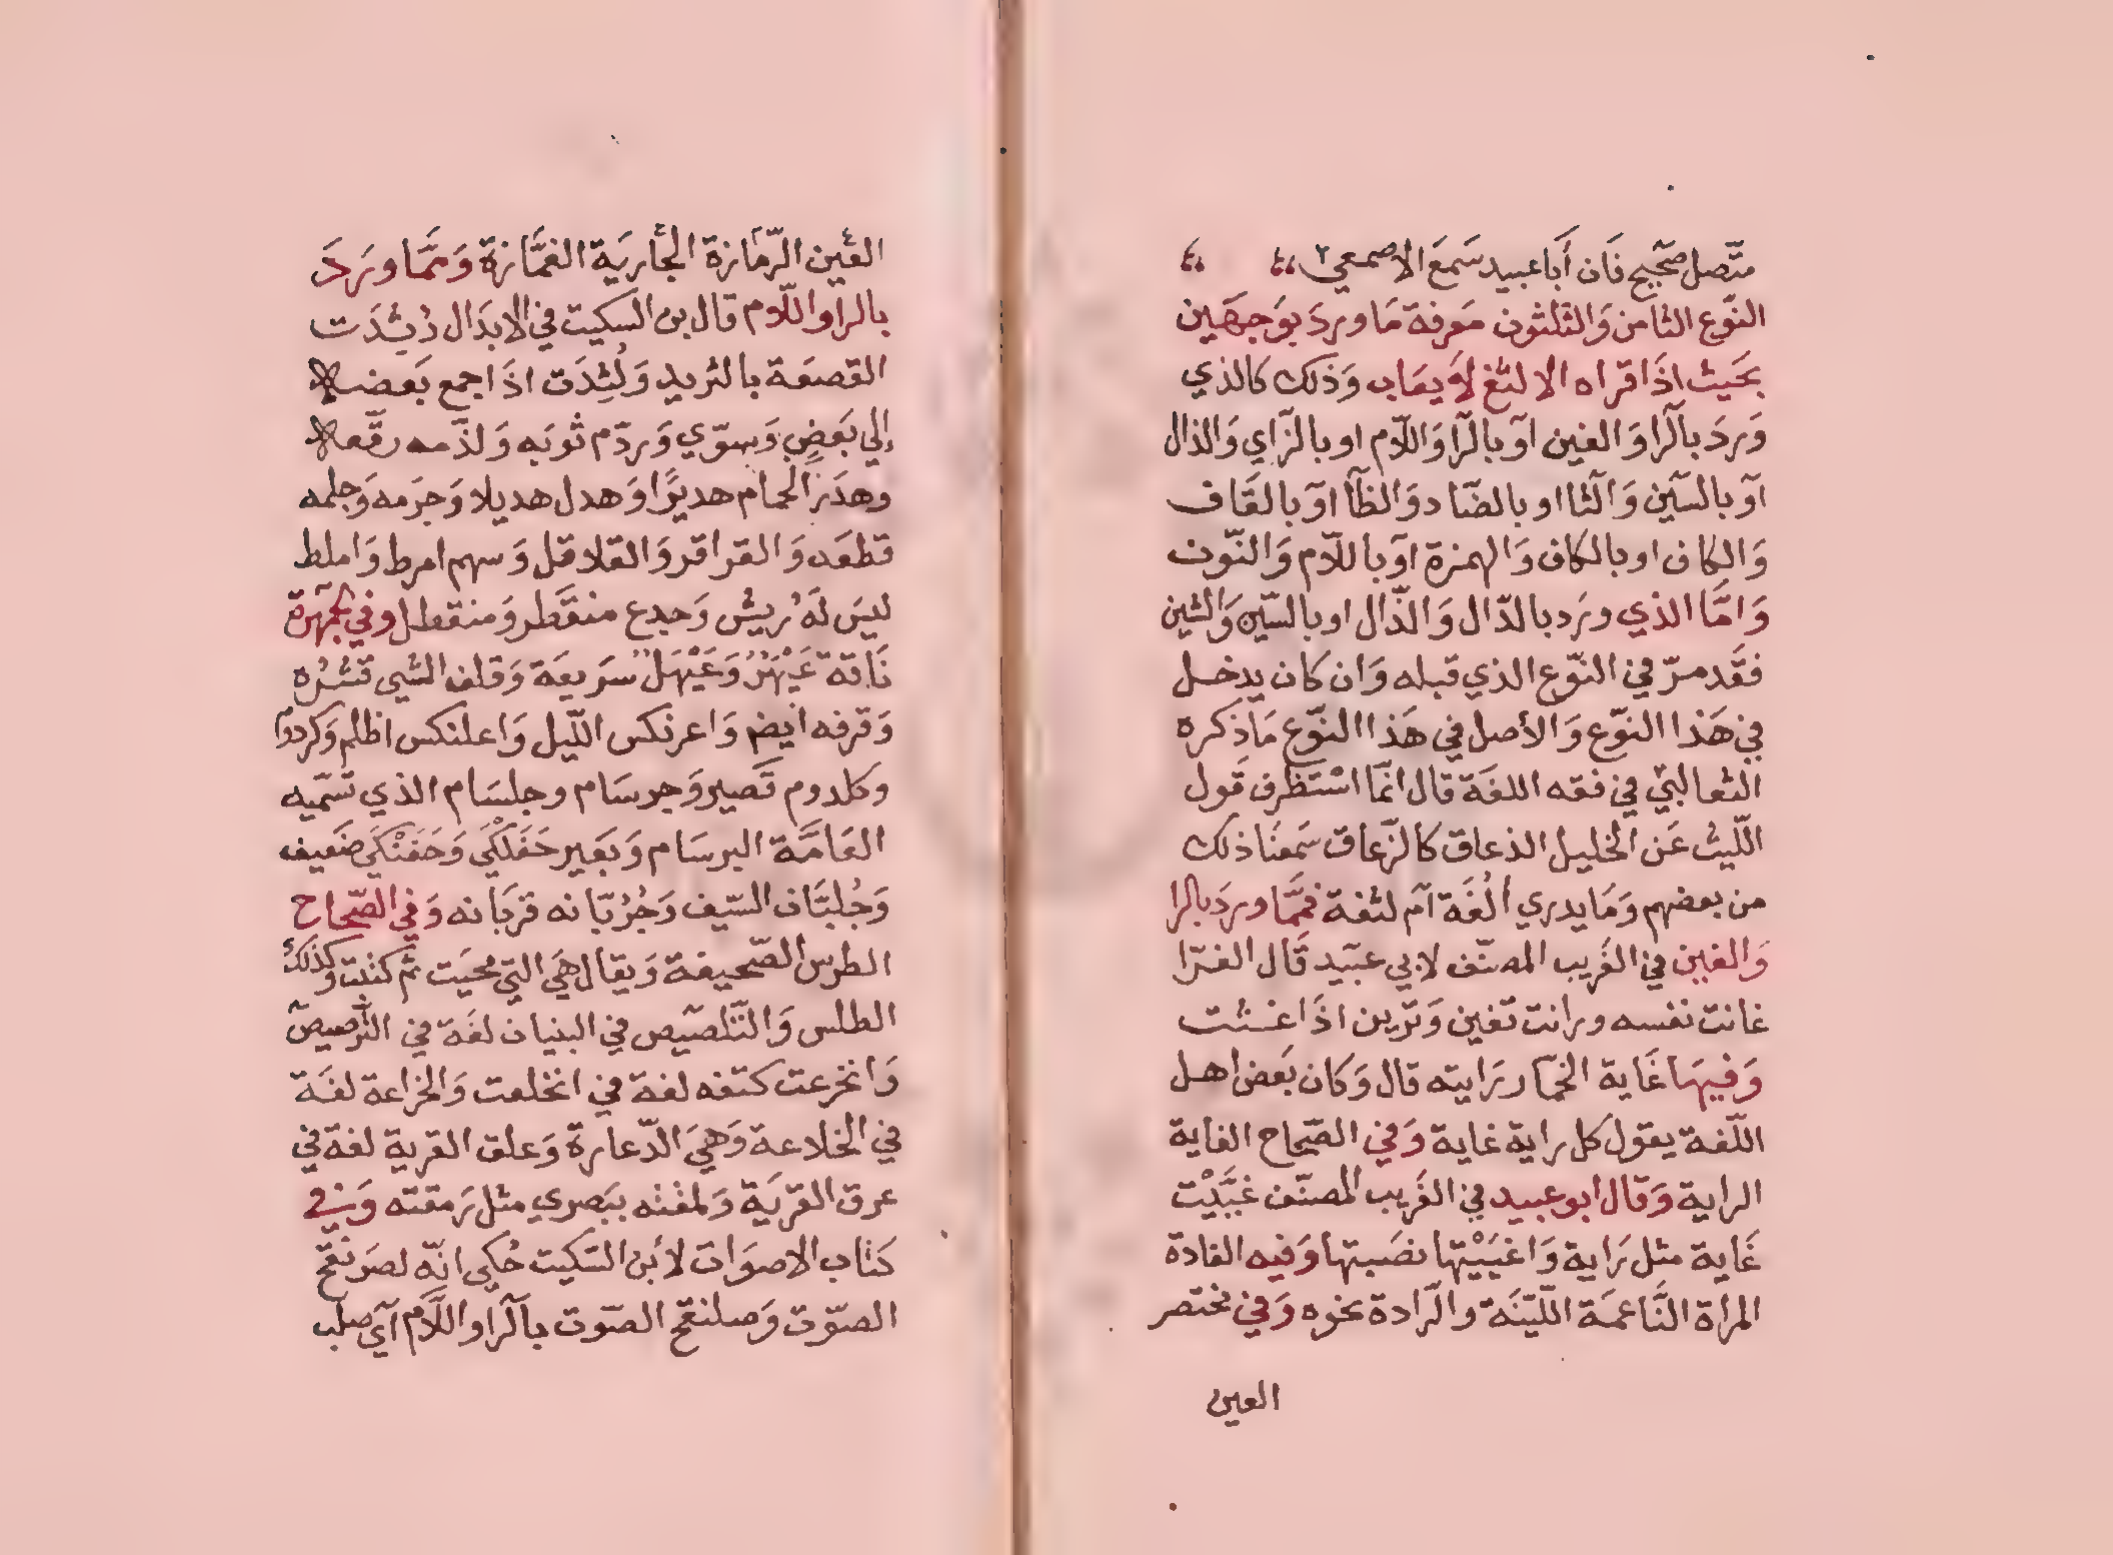 متّصل صحيح فَان أَباعبيد سَمعَ الاصمعي
النّوع الثامن وَالثلثون مَعرفة مَا وردَ بوَجهَين
بحَيث اذَا قراه الالثغ لاَ يعَاب وَذلك كالذي
وَردَ بآلرا وَالغين آو بآلرا وَاللّام او بالزاي وَالذال
آو بالسّين وَآلثا او بالضّاد وَالظآا آو بالقَاف
وَالكاف او بالكاف وَالهمزة آو باللّام وَالنّون
وَامَّا الذي ورَد بالدّال وَالذّال او بالسّين وَالشين
فقَد مرّ في النّوع الذي قبله وَان كان يدخل
في هَذا النوّع وَالأصل في هَذا النوّع مَا ذكره
الثعالبيّ في فقه اللغَة قال انَّما اسْتَظرف قَول
اللّيث عَن الخليل الذعاق كالزّعاق سَمعنَا ذلك
من بعضهم وَمَا يدري أَلُغَة آم لثغة فممَّا وردَ بالرا
وَالغين في الغَريب المصنّف لابي عبَيد قَال الفرّا
غانت نفسه ورانت تغين وَترين اذَا غثت
وَفيهَا غَاية الخمّار رَايته قال وَكان بَعض اهل
اللّغة يقول كل راية غاية وَفي الصّحاح الغاية
الراية وَقال ابو عبيد في الغَريب المصنّف غيَّيْت
غَاية مثل رَاية وَاغيَيْتها نصَبتها وَفيه الغادة
المرأة النَّاعمَة اللّينَة والرّادة نحوه وَفي مختصر
العين
العَين الرّمَّازة الجَاريَة الغمَّازة وَممَّا ورَدَ
بالرا واللّام قال بن السكيت في الابدَال رُثدَت
القصعَة بالثريد وَلُثِدَت اذَا جمع بَعضها
إلي بَعضٍ وَسوّي وَردّم ثوبَه وَلدّمه رقَّعها
وهدَر الحمام هديرًا وَهدل هديلا وَجرَمه وَجلمه
قطعَه وَالقراقر وَالقلاقل وَسهم امرط وَاملط
ليسَ لَهُ ريش وَجدع منقَّطر وَمنقطل وفي الجمهرة
نَاقة عَيْهَرُ وَعَيْهَلُ سَريعَة وَقلف الشي قشُره
وَقرفه ايضً وَاعرنكس اللّيل وَاعلنكس اظلم وَكردوم
وكلدوم قَصير وَجرسَام وجلسَام الذي تسَمّيه
العَامَّة البرسَام وَبَعير حَفَلْكَي وَحَفَنْكَي ضَعيف
وَجُلبَّان السّيف وَجُرُبّانه قرَبانه وَفي الصّحاح
الطرس الصّحيفة وَيقال هَي التي محيَت ثم كتبت وَكذلك
الطلس وَالتّلصيَص في البنيان لغَة في التّرصيص
وَانخرعت كتفه لغة في انخلعت وَالخراعة لغَة
في الخلاعة وَهيَ الدّعارة وَعلق القربة لغة في
عرق القربَة وَلمقته ببَصري مثل رَمقته وَفي
كتَاب الاصوَات لأبن السّكيت حُكي انّه لصَرنقح
الصّوت وَصلنقح الصّوت بآلرا واللّام آي صلب